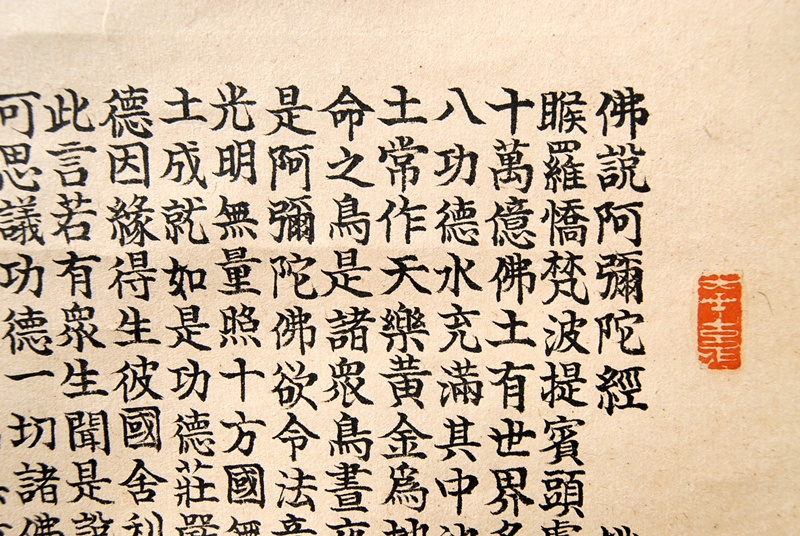 佛說阿彌陀經
睺羅憍梵波提賓頭盧
十萬億佛土有世界名
八功德水充滿其中池
土常作天樂黃金為地
命之鳥是諸衆鳥晝夜
是阿彌陀佛欲令法音
光明無量照十方國無
土成就如是功德莊嚴
德因緣得生彼國舍利
此言若有衆生聞是說
可思議功德一切諸佛